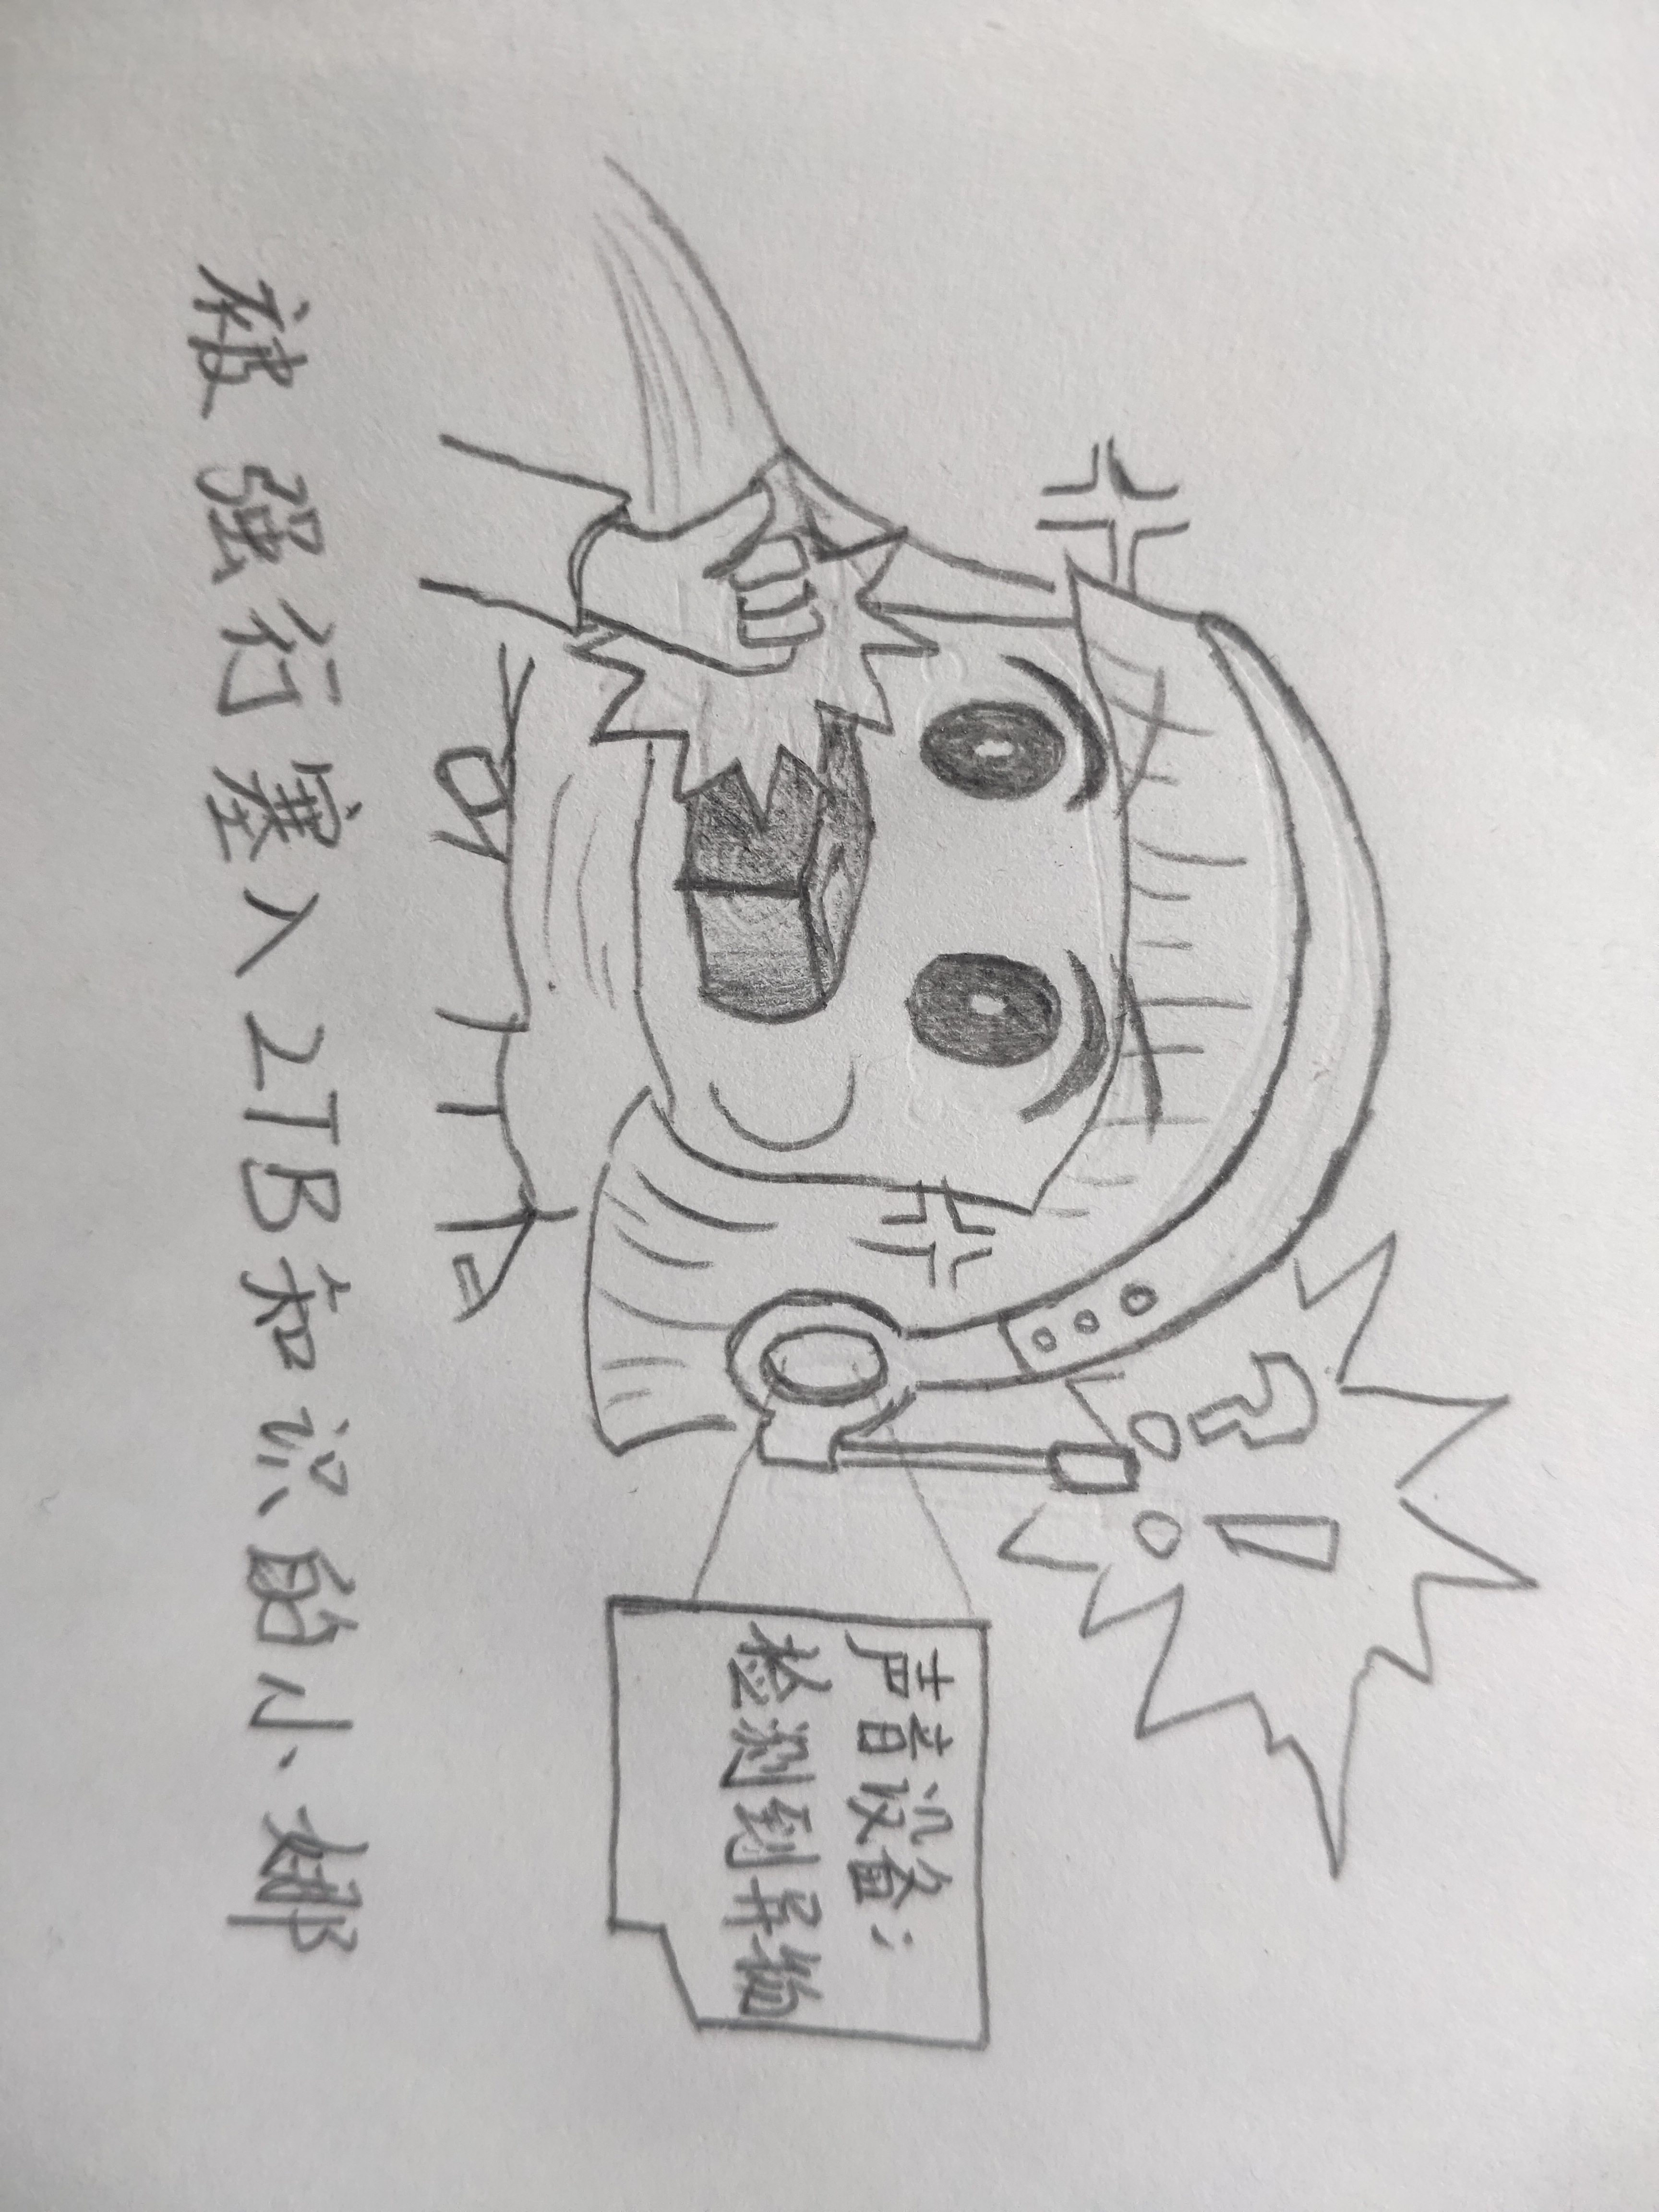 ?!
声音设备:
检测到异物
被强行塞入2TB知识的小娜